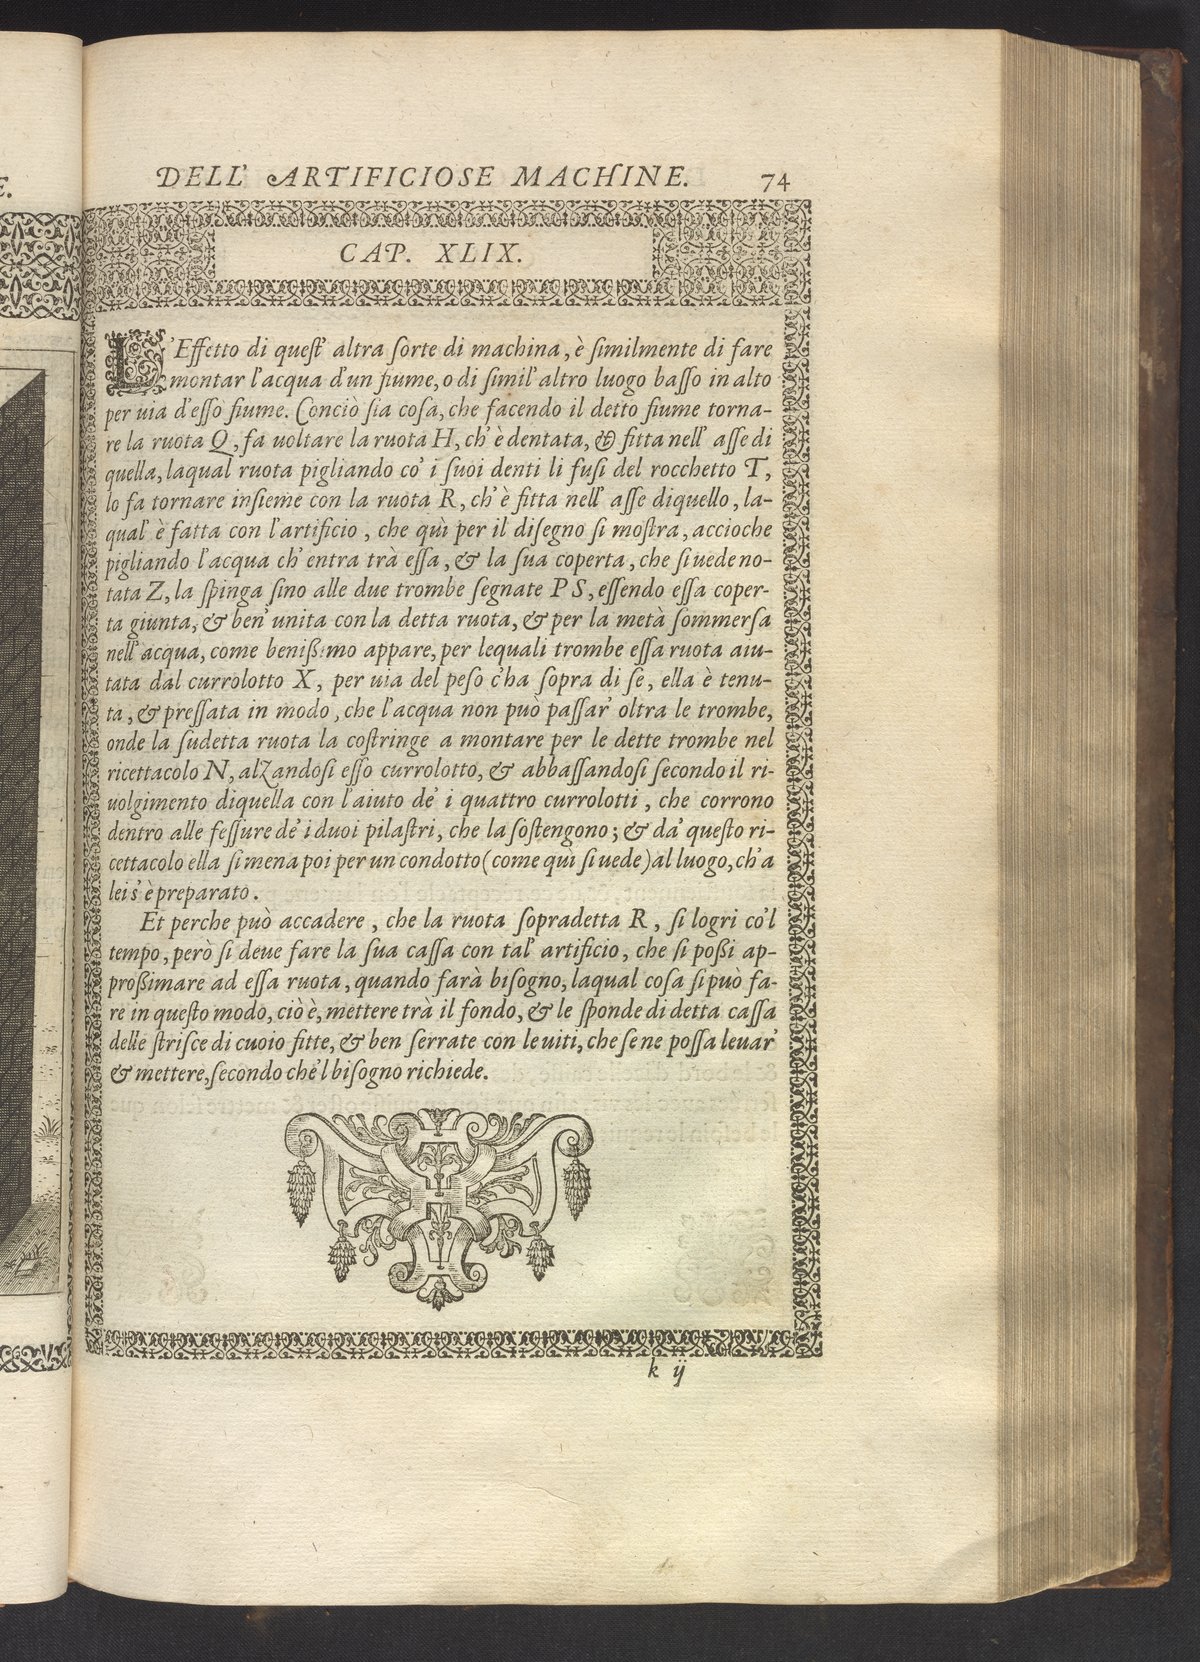 E.
DELL' ARTIFICIOSE MACHINE. 74
CAP. XLIX.
L'Effetto di quest' altra sorte di machina, è similmente di fare
montar l'acqua d'un fiume, o di simil' altro luogo basso in alto
per uia d'esso fiume. Conciò sia cosa, che facendo il detto fiume torna-
re la ruota Q, fa uoltare la ruota H, ch'è dentata, & fitta nell' asse di
quella, laqual ruota pigliando co' i suoi denti li fusi del rocchetto T,
lo fa tornare insieme con la ruota R, ch'è fitta nell' asse diquello, la-
qual' è fatta con l'artificio, che quì per il disegno si mostra, accioche
pigliando l'acqua ch' entra trà essa, & la sua coperta, che si uede no-
tata Z, la spinga sino alle due trombe segnate P S, essendo essa coper-
ta giunta, & ben' unita con la detta ruota, & per la metà sommersa
nell' acqua, come benißimo appare, per lequali trombe essa ruota aiu-
tata dal currolotto X, per uia del peso c'ha sopra di se, ella è tenu-
ta, & pressata in modo, che l'acqua non può passar' oltra le trombe,
onde la sudetta ruota la costringe a montare per le dette trombe nel
ricettacolo N, alzandosi esso currolotto, & abbassandosi secondo il ri-
uolgimento diquella con l'aiuto de' i quattro currolotti, che corrono
dentro alle fessure de' i duoi pilastri, che la sostengono; & da' questo ri-
cettacolo ella si mena poi per un condotto (come quì si uede) al luogo, ch'a
lei s'è preparato.
Et perche può accadere, che la ruota sopradetta R, si logri co'l
tempo, però si deue fare la sua cassa con tal' artificio, che si poßi ap-
proßimare ad essa ruota, quando farà bisogno, laqual cosa si può fa-
re in questo modo, ciò è, mettere trà il fondo, & le sponde di detta cassa
delle strisce di cuoio fitte, & ben serrate con le uiti, che se ne possa leuar'
& mettere, secondo che'l bisogno richiede.
k ij